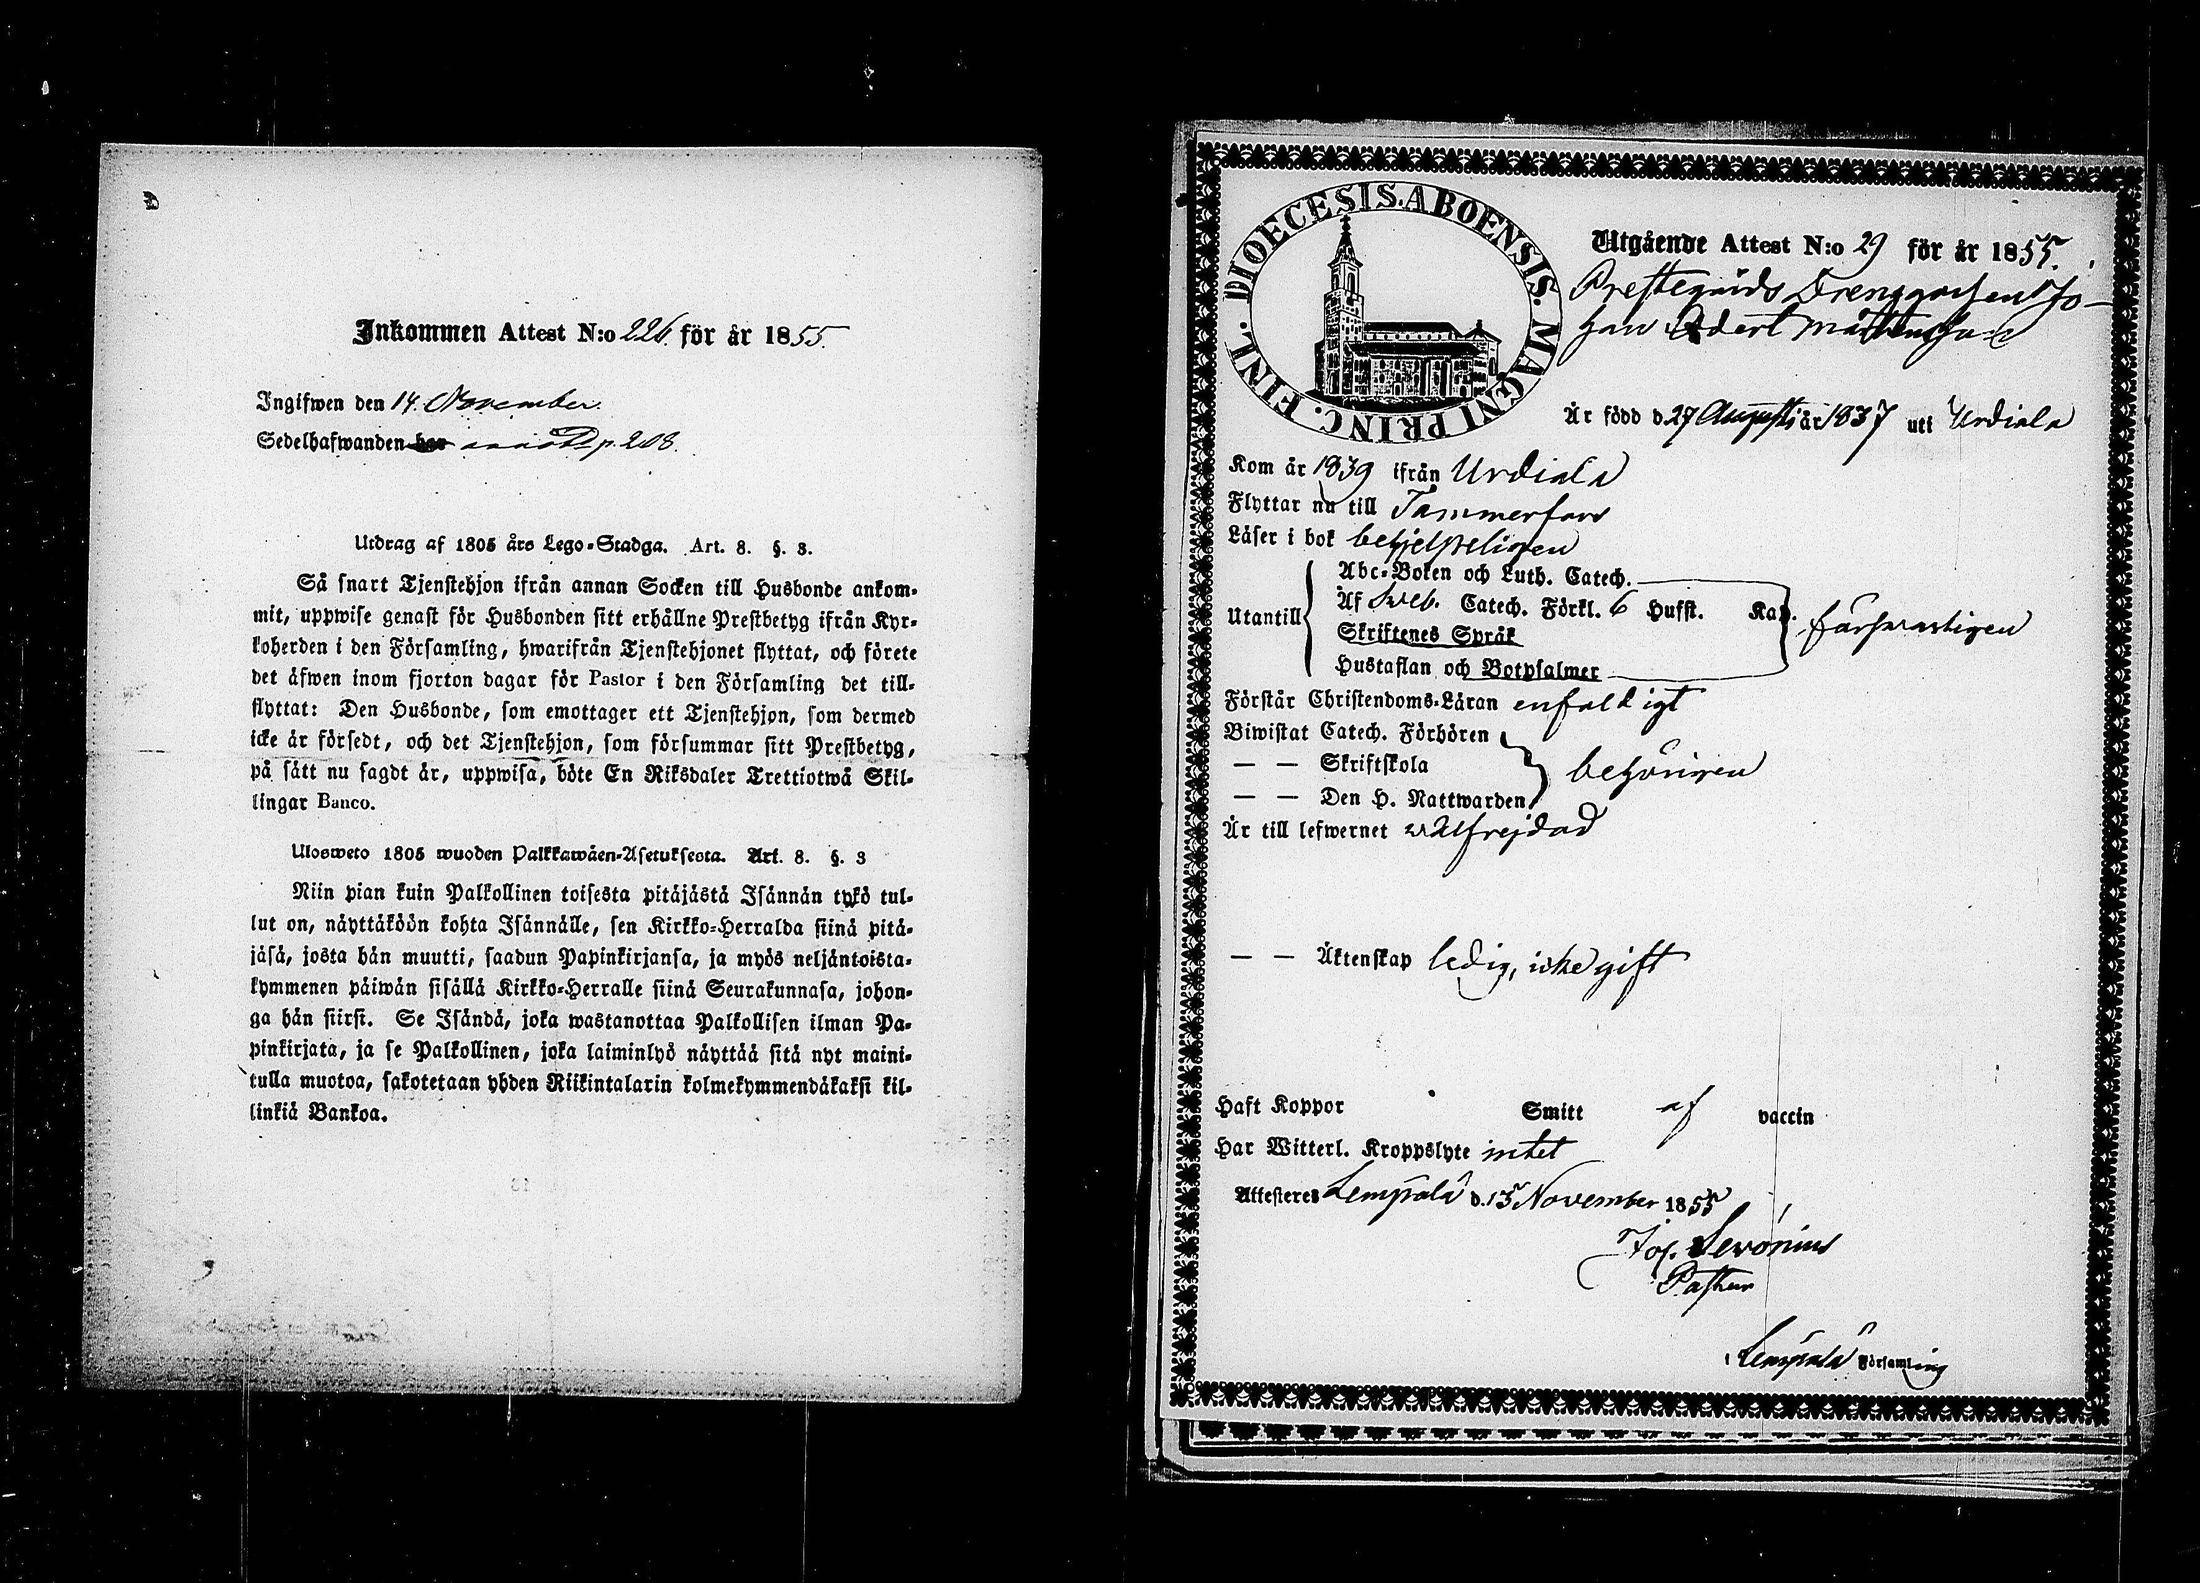 Inkommen Attest N:o 226. för år 1855.
Ingifwen den 14. November.
Sedelhafwanden p. 208.
Utdrag af 1805 års Lego-Stadga. Art. 8. §. 3.
Så snart Tjenstehjon ifrån annan Socken till Husbonde ankom-
mit, uppwise genast för Husbonden sitt erhållne Prestbetyg ifrån Kyr-
koherden i den Församling, hwarifrån Tjenstehjonet flyttat, och förete
det äfwen inom fjorton dagar för Pastor i den Församling det till-
flyttat: Den Husbonde, som emottager ett Tjenstehjon, som dermed
icke är försedt, och det Tjenstehjon, som försummar sitt Prestbetyg,
på sätt nu sagdt är, uppwisa, böte En Riksdaler Trettiotwå Skil-
lingar Banco.
Ulosweto 1805 wuoden Palkkawäen-Asetuksesta. Art. 8. §. 3
Niin pian kuin Palkollinen toisesta pitäjästä Isännän tykö tul-
lut on, näyttäköön kohta Isännälle, sen Kirkko-Herralda siinä pitä-
jäsä, josta hän muutti, saadun Papinkirjansa, ja myös neljäntoista-
kymmenen päiwän sisällä Kirkko-Herralle siinä Seurakunnasa, johon-
ga hän siirsi. Se Isändä, joka wastanottaa Palkollisen ilman Pa-
pinkirjata, ja se Palkollinen, joka laiminlyö näyttää sitä nyt maini-
tulla muotoa, sakotetaan yhden Riikintalarin kolmekymmendäkaksi kil-
linkiä Bankoa.
DIOECESIS. ABOENSIS. MAGNI PRINC. FINL.
Utgående Attest N:o 29 för år 1855.
Prestegårds Drenggossen Jo-
han Edert Mattsson
Är född d. 27 Augusti år 1837 uti Urdiala
Kom år 1839 ifrån Urdiala
Flyttar nu till Tammerfors
Läser i bok behjelpeligen
Utantill
Abc-Boken och Luth. Catech.
Af Sveb. Catech. Förkl. 6 Hufst. Kap.
Skriftenes Språk
Hustaflan och Botpsalmer
försvarligen
Förstår Christendoms-Läran enfaldigt
Biwistat Catech. Förhören
— — Skriftskola
— — Den H. Nattwarden
behörigen
Är till lefwernet wälfrejdad
— — Äktenskap ledig, icke gift
Haft Koppor Smitt af vaccin
Har Witterl. Kroppslyte intet
Attesteras Lempälä d. 13 November 1855
Jos. Serenius
Pastor
Lempälä Församling